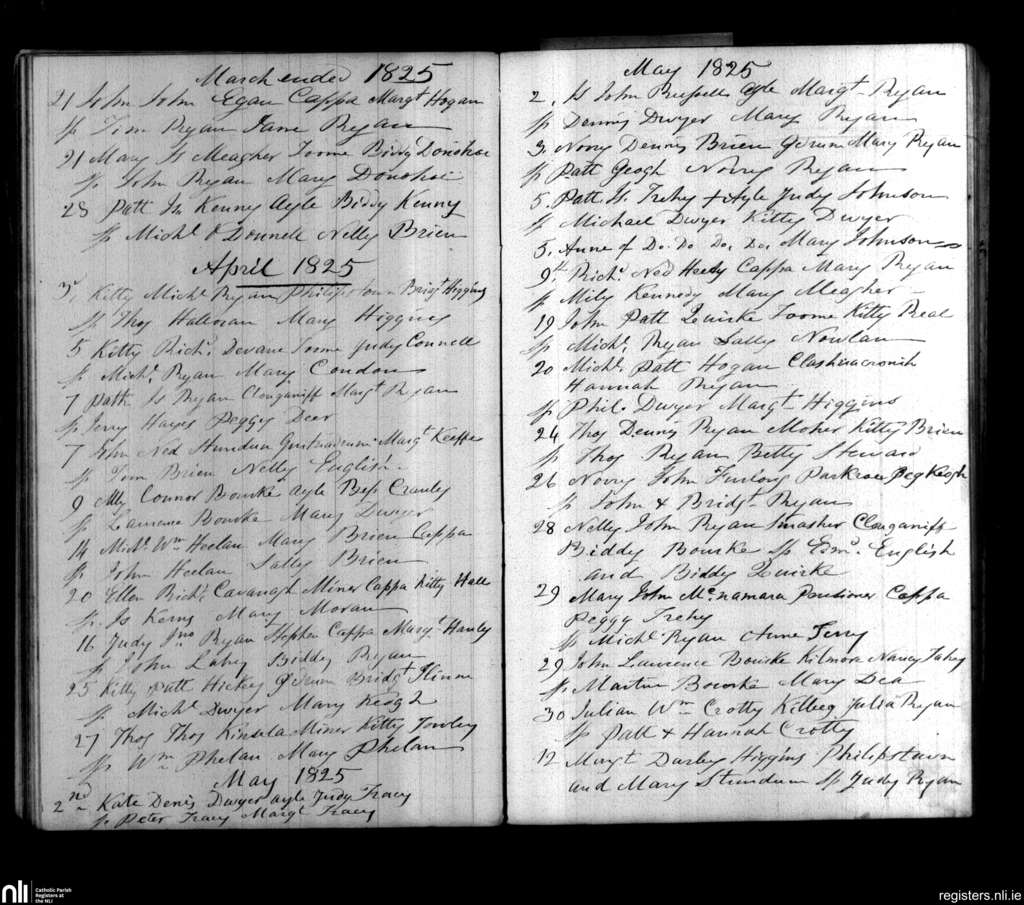 March ended 1825
21 John John Egan Cappa Margt Hogan
Sp Tim Ryan Jane Ryan
21 Mary Js Meagher Toome Biddy Donohoe
Sp John Ryan Mary Donohoe
28 Patt Jn Kenney Ayle Biddy Kenny
Sp Michl O Donnell Nelly Brien
April 1825
3 Kitty Michl Ryan Philipstown Brigt Higgins
Sp Thos Halloran Mary Higgins
5 Kitty Richd Devane Toome Judy Connell
Sp Michl Ryan Mary Condon
7 Patt Js Ryan Clonganiff Margt Ryan
Sp Jerry Hayes Peggy Deer
7 John Ned Margt Keeffe
Sp Tom Brien Nelly English
9 Connor Bourke Ayle Bess Crawley
Sp Laurence Bourke Mary Dwyer
14 Michl Wm Heelan Mary Brien Cappa
Sp John Heelan Sally Brien
20 Ellen Richd Cavanagh Miner Cappa Kitty Hall
Sp Js Kerns Mary Moran
16 Judy Jno Ryan Stephen Cappa Margt Hanly
Sp John Lahy Biddy Ryan
25 Kitty Patt Hickey Gdrum Bridgt Flinne
Sp Michl Dwyer Mary Keogh
27 Thos Thos Kinsela Miner Kitty Towley
Sp Wm Phelan Mary Phelan
May 1825
2nd Kate Denis Dwyer Ayle Judy Tracy
Sp Peter Tracy Margt Tracy
May 1825
2. Js John Russell Ayle Margt Ryan
Sp Dennis Dwyer Mary Ryan
3. Norry Dennis Brien Gdrum Mary Ryan
Sp Patt Geogh Norry Ryan
5. Patt Js Trehy Ayle Judy Johnson
Sp Michael Dwyer Kitty Dwyer
5. Anne of Do. Do Do. Do. Mary Johnson
9th Richd Ned Heely Cappa Mary Ryan
Sp Mily Kennedy Mary Meagher
19 John Patt Quirke Toome Kitty Real
Sp Michl Ryan Sally Nowlan
20 Michl Patt Hogan Clashnacronih
Hannah Ryan
Sp Phil. Dwyer Margt Higgins
24 Thos Dennis Ryan Moher Kitty Brien
Sp Thos Ryan Betty Steward
26 Norry John Furlong Peg Keogh
Sp John & Bridgt Ryan
28 Nelly John Ryan Smasher Clonganiff
Biddy Bourke Sp Edmd English
and Biddy Quirke
29 Mary John McNamara Pensioner Cappa
Peggy Trehy
Sp Michl Ryan Anne Terry
29 John Laurence Bourke Kilmore Nancy Fahey
Sp Martin Bourke Mary Dea
30 Julian Wm Crotty Kilbeg Julia Ryan
Sp Patt & Hannah Crotty
12 Margt Darby Higgins Philipstown
and Mary Sp Judy Ryan
nli
Catholic Parish
Registers at
the NLI
registers.nli.ie